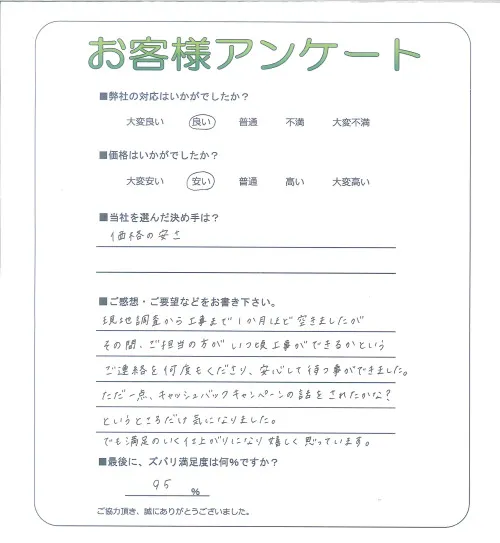 お客様アンケート
■弊社の対応はいかがでしたか？
大変良い 良い 普通 不満 大変不満
■価格はいかがでしたか？
大変安い 安い 普通 高い 大変高い
■当社を選んだ決め手は？
価格の安さ
■ご感想・ご要望などをお書き下さい。
現地調査から工事まで1か月ほど空きましたが
その間、ご担当の方がいつ頃工事ができるかという
ご連絡を何度もくださり、安心して待つ事ができました。
ただ一点、キャッシュバックキャンペーンの話をされたかな？
というところだけ気になりました。
でも満足のいく仕上がりになり嬉しく思っています。
■最後に、ズバリ満足度は何%ですか？
95 %
ご協力頂き、誠にありがとうございました。